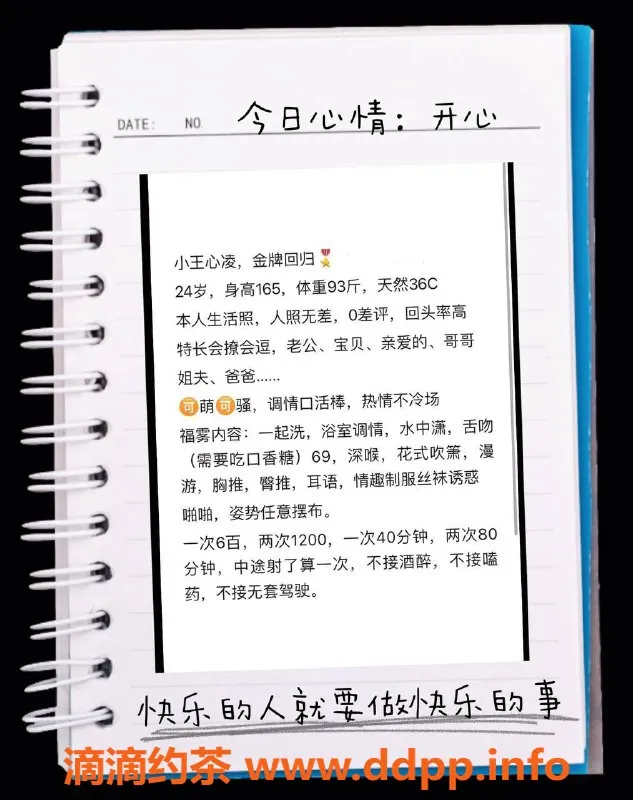 DATE: NO
今日心情：开心
小王心凌，金牌回归🎖️
24岁，身高165，体重93斤，天然36C
本人生活照，人照无差，0差评，回头率高
特长会撩会逗，老公、宝贝、亲爱的、哥哥
姐夫、爸爸……
🉑萌🉑骚，调情口活棒，热情不冷场
福雾内容：一起洗，浴室调情，水中潇，舌吻
（需要吃口香糖）69，深喉，花式吹箫，漫
游，胸推，臀推，耳语，情趣制服丝袜诱惑
啪啪，姿势任意摆布。
一次6百，两次1200，一次40分钟，两次80
分钟，中途射了算一次，不接酒醉，不接嗑
药，不接无套驾驶。
快乐的人就要做快乐的事
滴滴约茶 www.ddpp.info